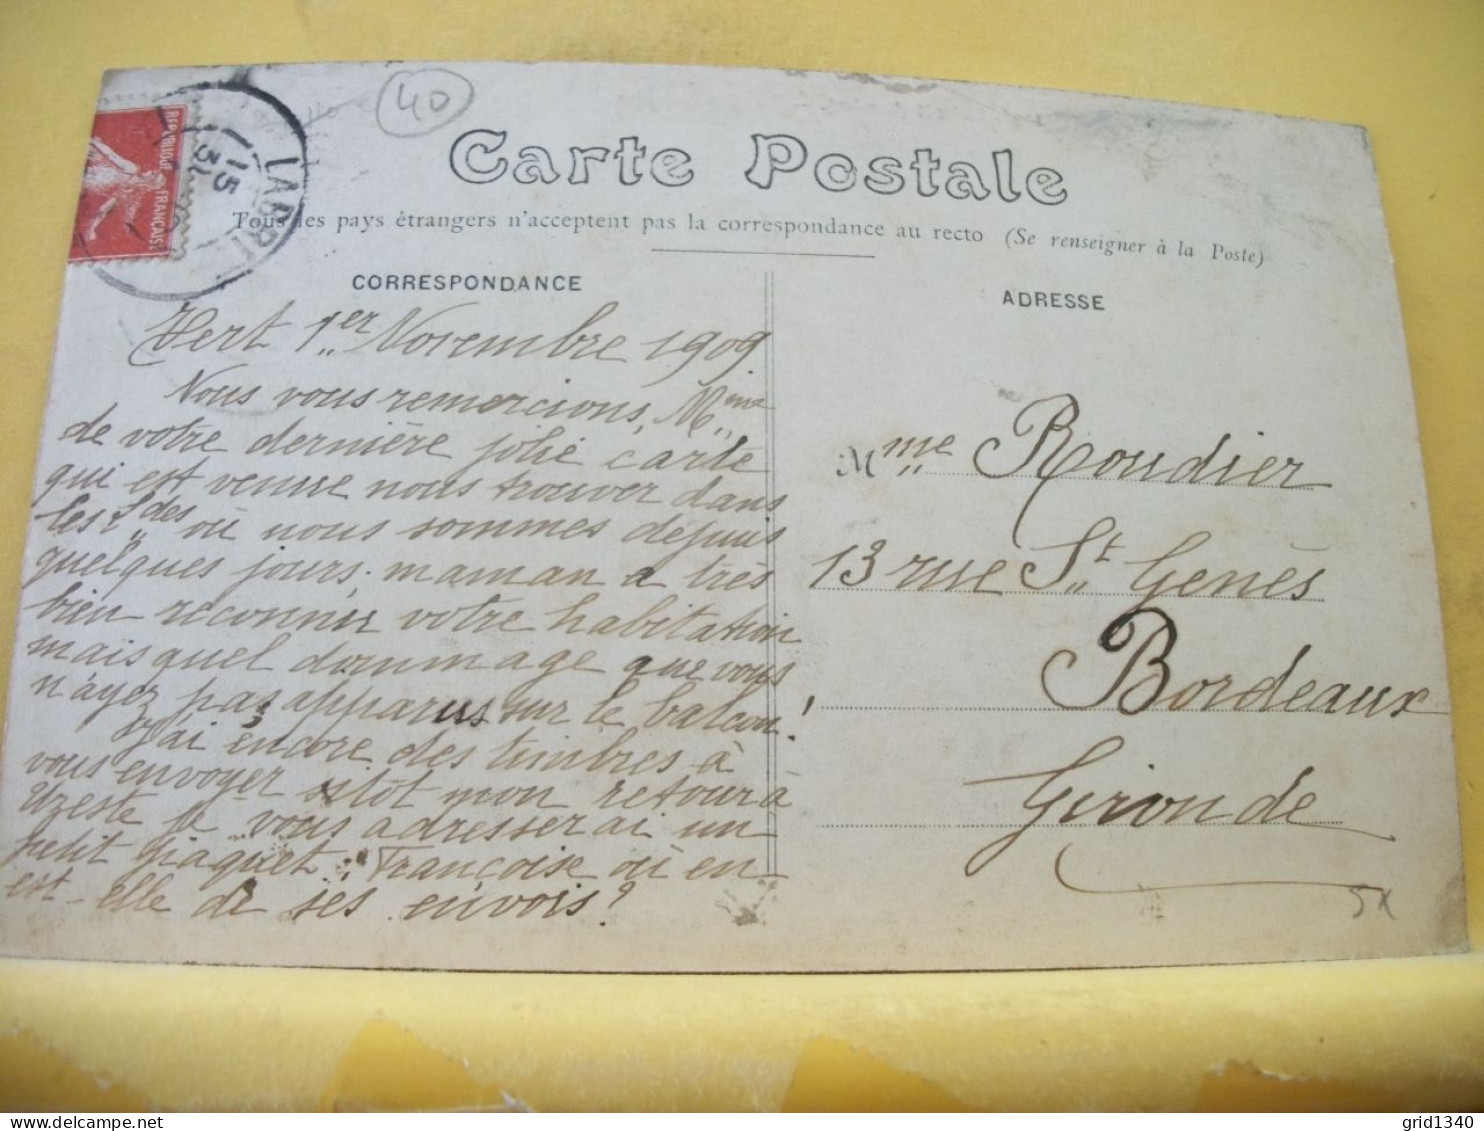 40
REPUBLIQUE FRANÇAISE
LABRIT
15
31
Carte Postale
Tous les pays étrangers n'acceptent pas la correspondance au recto (Se renseigner à la Poste)
CORRESPONDANCE
Vert 1er Novembre 1909
Nous vous remercions, Mme
de votre dernière jolie carte
qui est venue nous trouver dans
les Ldes où nous sommes depuis
quelques jours; maman a très
bien reconnu votre habitation
mais quel dommage que vous
n'ayez pas apparus sur le balcon!
J'ai encore des timbres à
vous envoyer sitôt mon retour à
Uzeste je vous adresserai un
petit paquet. Françoise où en
est-elle de ses envois?
ADRESSE
Mme Roudier
13 rue St Genès
Bordeaux
Gironde
grid1340